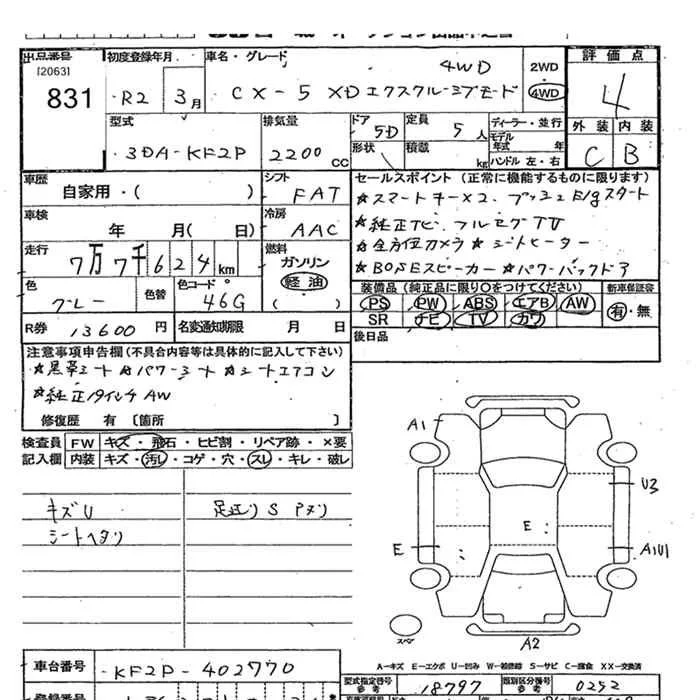 出品番号 初度登録年月 車名・グレード 評価点
[2063] 4WD 2WD
831 R2 3月 CX-5 XDエクスクルーシブモード 4WD 4
型式 排気量 ドア 5D 定員 5人 ディーラー・並行 外装 内装
3DA-KF2P 2200cc 形状 積載 kg モデル年式 年 C B
ハンドル 左・右
車歴 シフト セールスポイント (正常に機能するものに限ります)
自家用・( ) FAT ★スマートキー×2、プッシュE/gスタート
車検 冷房 ★純正ナビ フルセグTV
年 月( 日) AAC ★全方位カメラ★シートヒーター
走行 燃料 ★BOSEスピーカー★パワーバックドア
7万7千624km ガソリン
色 色替 色コード 軽油 装備品 (純正品に限り○をつけてください) 新車保証書
グレー 46G ( ) PS PW ABS エアB AW 有・無
R券 13600円 名変通知期限 月 日 SR ナビ TV カワ
後日品
注意事項申告欄(不具合内容等は具体的に記入して下さい)
★黒革シート★パワーシート★シートエアコン
★純正19インチAW
修復歴 有 〔箇所 〕
検査員 FW キズ・飛石・ヒビ割・リペア跡・×要
記入欄 内装 キズ・汚レ・コゲ・穴・スレ・キレ・破レ
キズU 足廻りS
シートヘタリ
A1
U3
E
E
A1U1
スペア
A2
A-キズ E-エクボ U-凹み S-サビ C-腐食 XX-交換済
車台番号 KF2P-402770
型式指定番号 参考 18797 類別区分番号 参考 0252